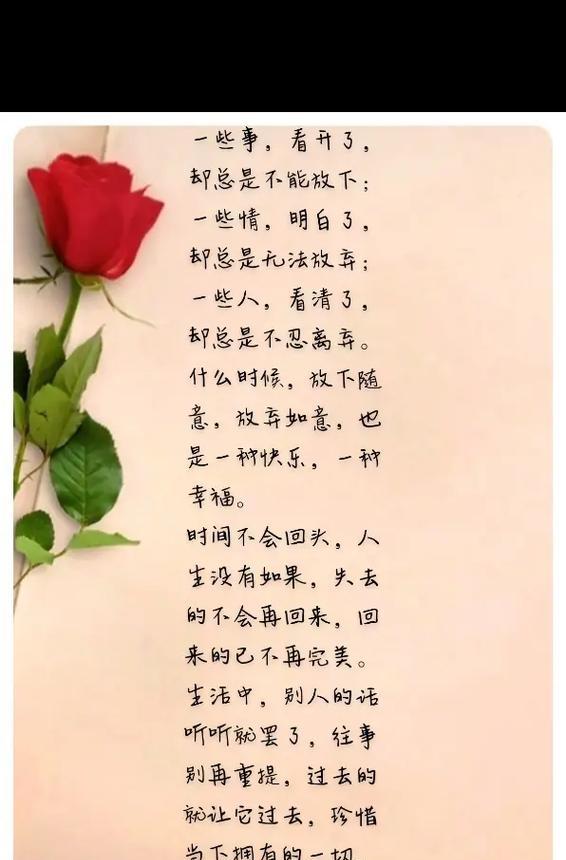 一些事，看开了，
却总是不能放下；
一些情，明白了，
却总是无法放弃；
一些人，看清了，
却总是不忍离弃。
什么时候，放下随
意，放弃如意，也
是一种快乐，一种
幸福。
时间不会回头，人
生没有如果，失去
的不会再回来，回
来的已不再完美。
生活中，别人的话
听听就罢了，往事
别再重提，过去的
就让它过去，珍惜
当下拥有的一切